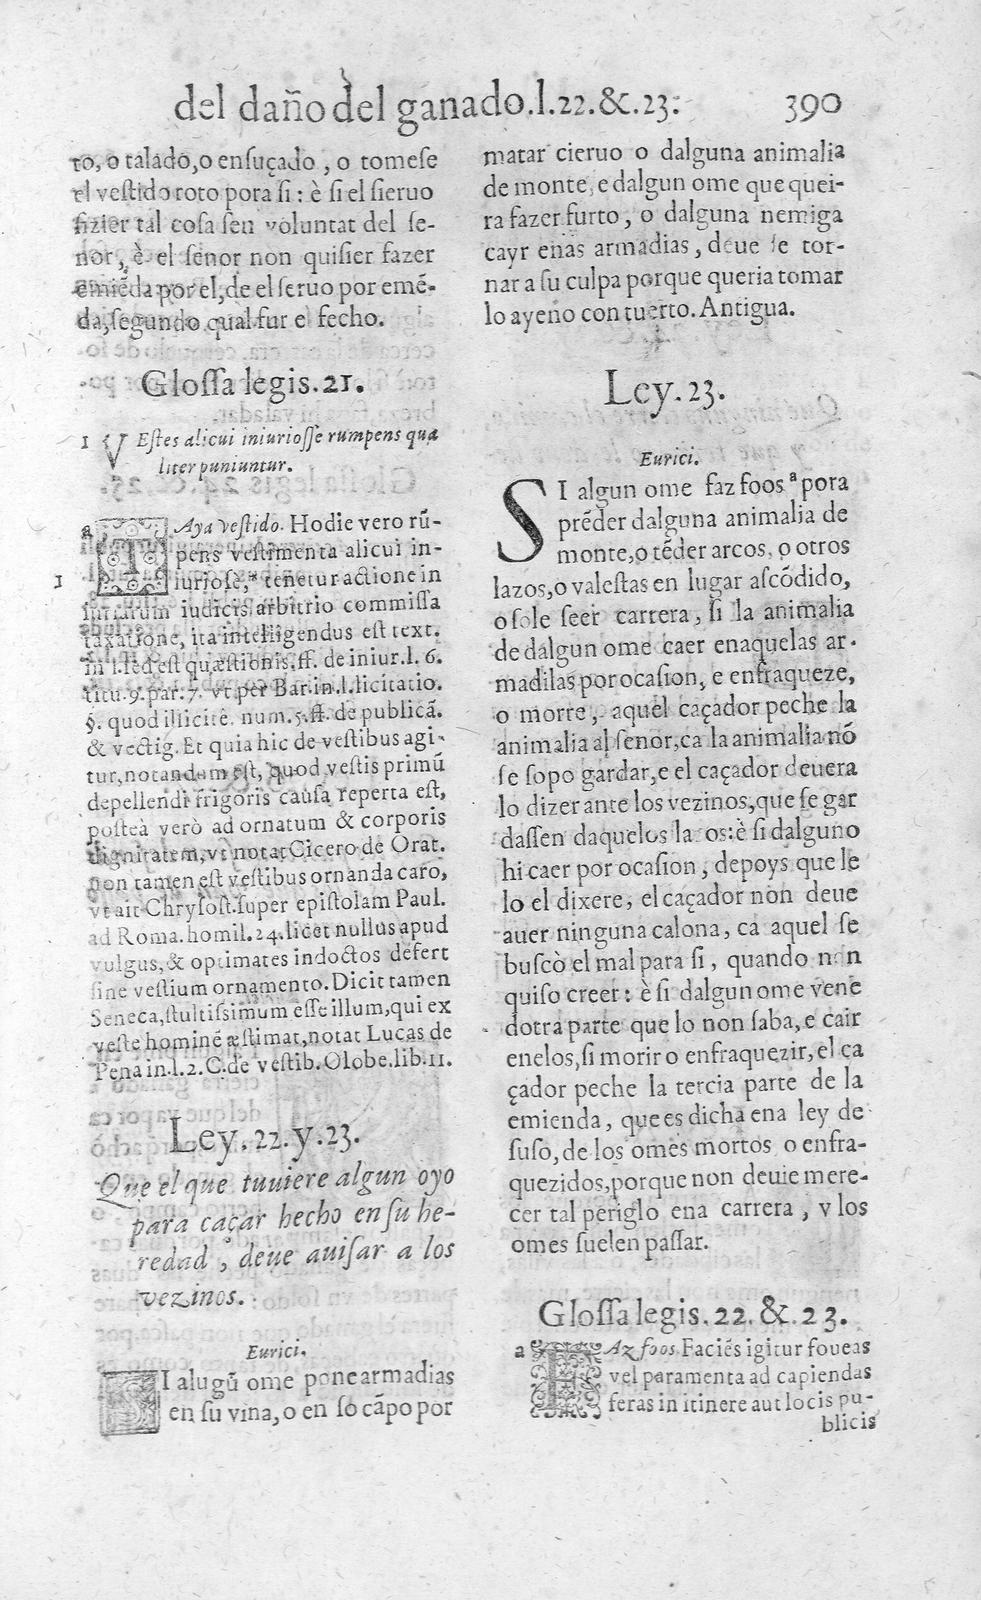 del daño del ganado.l.22.&.23. 390
to, o talado, o ensuçado, o tomese
el vestido roto pora si: è si el sieruo
fizier tal cosa sen voluntat del se-
nor, è el señor non quisier fazer
emiẽda por el, de el seruo por emẽ-
da, segundo qual fur el fecho.
Glossa legis.21.
1 VEstes alicui iniuriosse rumpens qua
liter puniuntur.
a TAya vestido. Hodie vero rũ-
pens vestimenta alicui in-
1 iuriose,* tenetur actione in
iuriarum iudicis arbitrio commissa
taxatione, ita intelligendus est text.
in l. sed est quæstionis. ff. de iniur. l. 6.
titu. 9. par. 7. vt per Bar. in. l. licitatio.
§. quod illicitè. num. 5. ff. de publicã.
& vectig. Et quia hic de vestibus agi-
tur, notandum est, quod vestis primũ
depellendi frigoris causa reperta est,
posteà verò ad ornatum & corporis
dignitatem, vt notat Cicero de Orat.
non tamen est vestibus ornanda caro,
vt ait Chrysost. super epistolam Paul.
ad Roma. homil. 24. licet nullus apud
vulgus, & optimates indoctos defert
sine vestium ornamento. Dicit tamen
Seneca, stultissimum esse illum, qui ex
veste hominẽ æstimat, notat Lucas de
Pena in. l. 2. C. de vestib. Olobe. lib. 11.
Ley. 22. y. 23.
Que el que tuuiere algun oyo
para caçar hecho en su he-
redad, deue auisar a los
vezinos.
Eurici.
SI alugũ ome pone armadias
en su vina, o en so cãpo por
matar cieruo o dalguna animalia
de monte, e dalgun ome que quei-
ra fazer furto, o dalguna nemiga
cayr enas armadias, deue se tor-
nar a su culpa porque queria tomar
lo ayeno con tuerto. Antigua.
Ley. 23.
Eurici.
SI algun ome faz foos ª pora
prẽder dalguna animalia de
monte, o tẽder arcos, o otros
lazos, o valestas en lugar ascõdido,
o sole seer carrera, si la animalia
de dalgun ome caer enaquelas ar-
madilas por ocasion, e enfraqueze,
o morre, aquel caçador peche la
animalia al señor, ca la animalia nõ
se sopo gardar, e el caçador deuera
lo dizer ante los vezinos, que se gar
dassen daquelos la os: è si dalguno
hi caer por ocasion, depoys que le
lo el dixere, el caçador non deue
auer ninguna calona, ca aquel se
buscò el mal para si, quando non
quiso creer: è si dalgun ome vene
dotra parte que lo non saba, e cair
enelos, si morir o enfraquezir, el ca
çador peche la tercia parte de la
emienda, que es dicha ena ley de
suso, de los omes mortos o enfra-
quezidos, porque non deuie mere-
cer tal periglo ena carrera, v los
omes suelen passar.
Glossa legis. 22. & 23.
a FAz foos. Faciẽs igitur foueas
vel paramenta ad capiendas
feras in itinere aut locis pu-
blicis